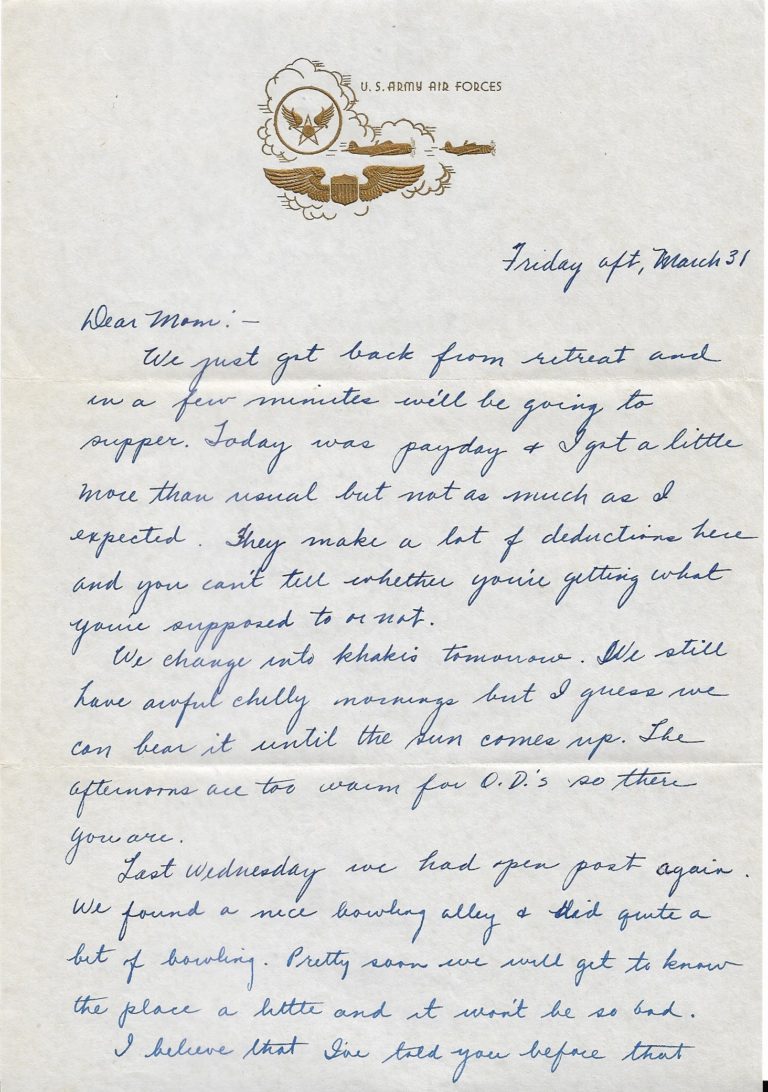 U.S. ARMY AIR FORCES
Friday aft, March 31
Dear Mom:—
We just got back from retreat and
in a few minutes we'll be going to
supper. Today was payday & I got a little
more than usual but not as much as I
expected. They make a lot of deductions here
and you can't tell whether you're getting what
you're supposed to or not.
We change into khakis tomorrow. We still
have awful chilly mornings but I guess we
can bear it until the sun comes up. The
afternoons are too warm for O.D.'s so there
you are.
Last Wednesday we had open post again.
We found a nice bowling alley & did quite a
bit of bowling. Pretty soon we will get to know
the place a little and it won't be so bad.
I believe that I've told you before that